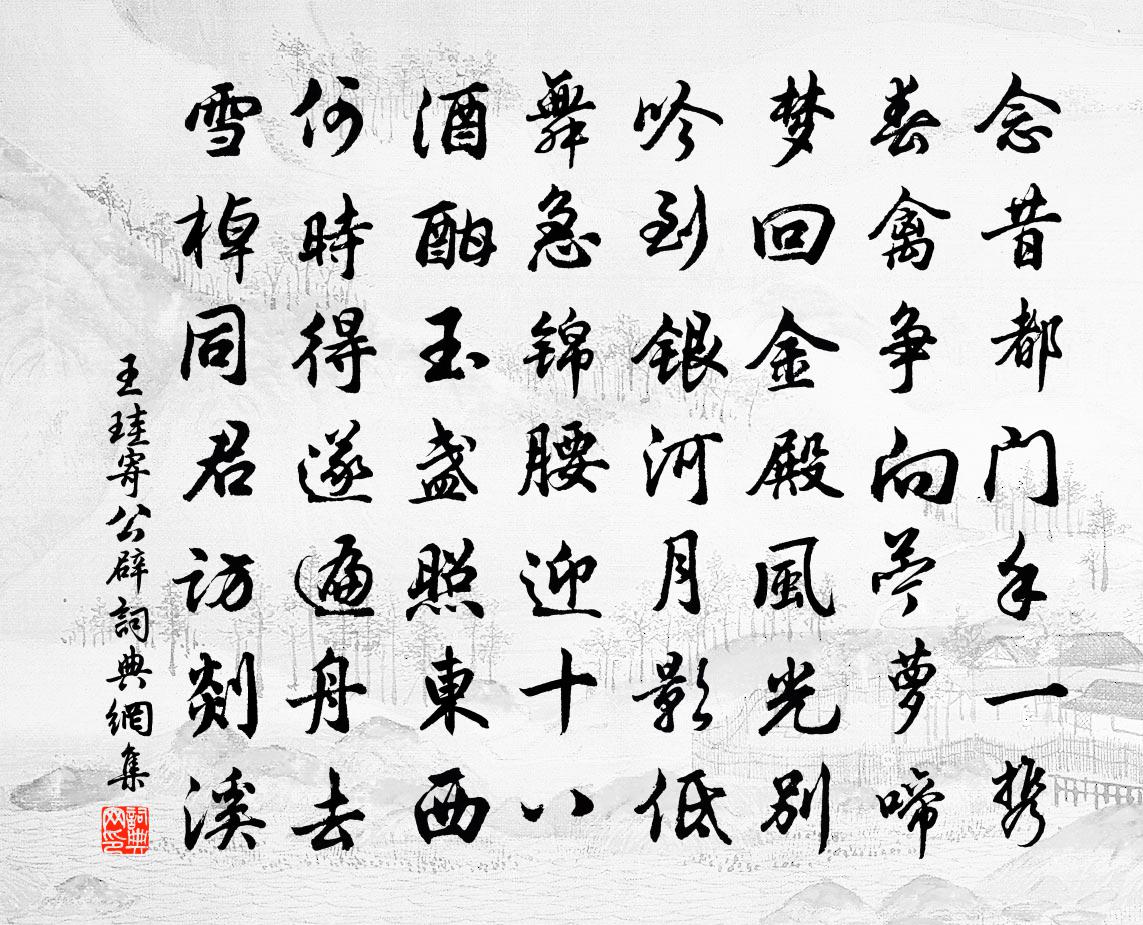 念昔都门手一携
春禽争向苎萝啼
梦回金殿風光别
吟到银河月影低
舞急锦腰迎十八
酒酣玉盏照東西
何時得遂遍舟去
雪棹同君访剡溪
王珪寄公辟詞典網集
詞典网印